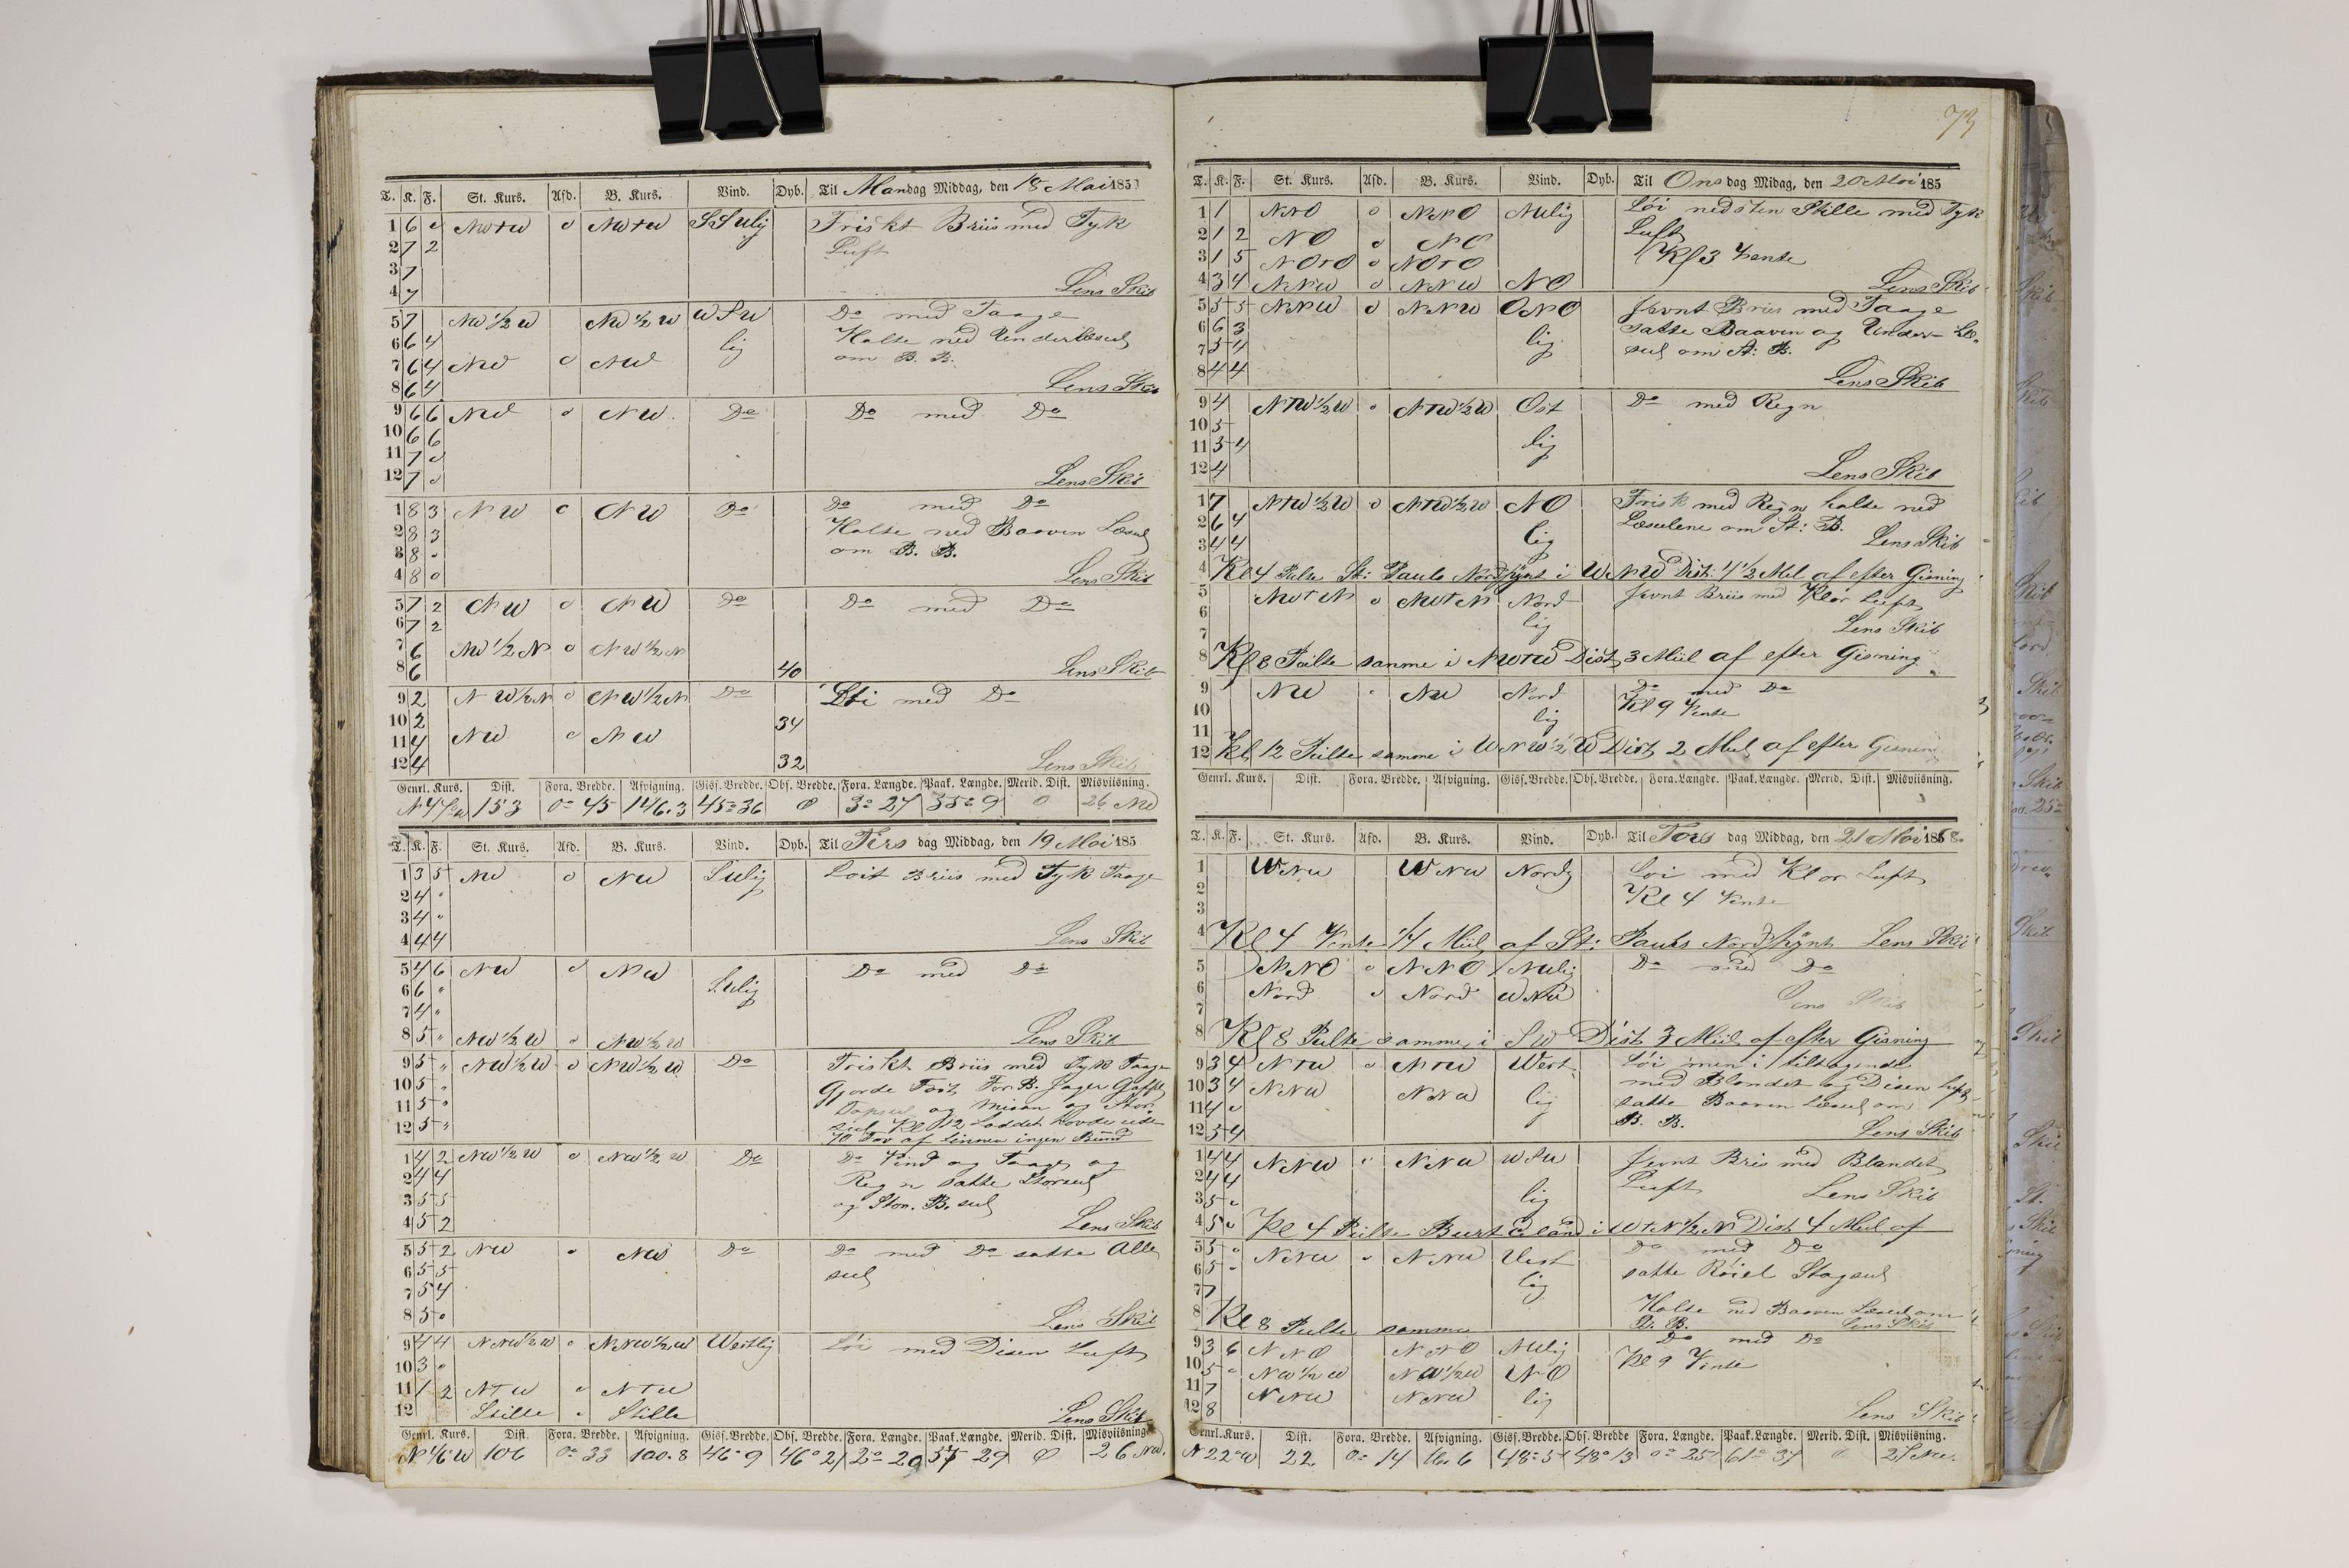 73
T. K. F. St. Kurs. Afd. B. Kurs. Vind. Dyb. Til Mandag Middag, den 18 Mai 185
1 6 NW t W o NW t W SSWlig Friskt Briis med Tyk
2 7 2 Luft
3 7
4 7 Lens Skib
5 7 NW 1/2 W NW 1/2 W WSW Do med Taage
6 6 4 lig Halte ned Underlæseil
7 6 4 NW o NW om B. B.
8 6 4 Lens Skib
9 6 6 NW o NW Do Do med Do
10 6 6
11 7 o
12 7 o Lens Skib
1 8 3 NW o NW Do Do med Do
2 8 3 Halte ned Baaven Læseil
3 8 om B. B.
4 8 o Lens Skib
5 7 2 NW o NW Do Do med Do
6 7 2
7 6 NW 1/2 N o NW 1/2 N
8 6 40 Lens Skib
9 2 NW 1/2 N o NW 1/2 N Do Løi med Do
10 2 34
11 4 NW o NW
12 4 32 Lens Skib
Genrl. Kurs. Dist. Fora. Bredde. Afvigning. Gisf. Bredde. Obs. Bredde. Fora. Længde. Paak. Længde. Merid. Dist. Misviisning.
153 0° 45 146.3 45° 36 0 3° 27 35° 9 0 26 NW
T. K. F. St. Kurs. Afd. B. Kurs. Vind. Dyb. Til Tirsdag Middag, den 19 Mai 185
1 3 5 NW o NW SWlig Løit Briis med Tyk Taage
2 4 "
3 4 "
4 4 4 Lens Skib
5 4 6 NW o NW SWlig Do med Do
6 6 "
7 4 "
8 5 " NW 1/2 W o NW 1/2 W Lens Skib
9 5 " NW 1/2 W o NW 1/2 W Do Friskt Briis med Tyk Taage
10 5 " Gjorde Fast For B. Jager Gaffel
11 5 " Topseil og Misan og Stor
12 5 " seil Kl 12 Loddet havde ude
70 Fav af Linnen ingen Bund
1 4 2 NW 1/2 W o NW 1/2 W Do Do Vind og Taage og
2 4 4 Regn satte Storseil
3 5 5 og Stor. B. seil
4 5 2 Lens Skib
5 5 2 NW o NW Do Do med Do satte Alle
6 5 5 seil
7 5 4
8 5 o Lens Skib
9 4 4 NNW 1/2 W o NNW 1/2 W Westlig Løi med Disen Luft
10 3 o
11 1 2 N t W o N t W
12 Stille Stille Lens Skib
Genrl. Kurs. Dist. Fora. Bredde. Afvigning. Gisf. Bredde. Obs. Bredde. Fora. Længde. Paak. Længde. Merid. Dist. Misviisning.
106 0° 33 100.8 46° 9 46° 21 2° 20 29 0 26 NW.
T. K. F. St. Kurs. Afd. B. Kurs. Vind. Dyb. Til Onsdag Midag, den 20 Mai 185
1 1 NNO o NNO NWlig Løi nedsten Stille med Tyk
2 1 2 NO o NO Luft
3 1 5 NOtO o NOtO Kl 3 Vente
4 3 4 NNW o NNW NO Lens Skib
5 5 5 NNW o NNW ONO Jevnt Briis med Taage
6 6 3 lig satte Baaven og Under Læ-
7 5 4 seil om St: B.
8 4 4 Lens Skib
9 4 NtW 1/2 W o NtW 1/2 W Ost Do med Regn
10 5
11 5 4 lig
12 4 Lens Skib
1 7 NtW 1/2 W o NtW 1/2 W NO Frisk med Regn halte ned
2 6 4 Læseilene om St: B.
3 4 4 lig Lens Skib
4 Kl 4 Peilte St: Pauls Nordspynt i WNW Dist: 1 1/2 Mil af efter Gisning
5 NW t N o NW t N Nord Jevnt Briis med Klar Luft
6 lig
7 Lens Skib
8 Kl 8 Peilte samme i NWtW Dist 3 Miil af efter Gisning
9 NW NW Nord Do med Do
10 lig Kl 9 Vente
11
12 Kl 12 Peilte samme i WNW 1/2 W Dist 2 Miil af efter Gisning
Genrl. Kurs. Dist. Fora. Bredde. Afvigning. Gisf. Bredde. Obs. Bredde. Fora. Længde. Paak. Længde. Merid. Dist. Misviisning.
T. K. F. St. Kurs. Afd. B. Kurs. Vind. Dyb. Til Torsdag Middag, den 21 Mai 1858.
1 WNW WNW Nordlg Løi med Klar Luft
2 Kl 4 Vente
3
4 Kl 4 Vente 1/4 Miil af St: Pauls Nordspynt Lens Skib
5 NNO o NNO NWlig Do med Do
6 Nord o Nord WNW
7 Lens Skib
8 Kl 8 Peilte samme i SW Dist 3 Miil af efter Gisning
9 3 4 NtW o NtW West Løi men i tiltagende
10 3 4 NNW NNW lig med Blandet og Disen Luft
11 4 satte Baaven Læseil om
12 5 4 B. B. Lens Skib
1 4 4 NNW NNW WSW Jevnt Bris med Blandet
2 4 4 Luft
3 5 lig Lens Skib
4 5 Kl 4 Peilte Burt Eiland i WtN 1/2 N Dist 4 Miil af
5 5 NNW NNW Vest Do med Do
6 5 lig satte Røiel Stagseil
7 7 Halte ned Baaven Læseil om
8 Kl 8 Peilte samme B. B. Lens Skib
9 3 6 NNO NNO NWlig Do med Do
10 5 NW 1/2 W NW 1/2 W NO Kl 9 Vente
11 7 NNW NNW lig
12 8 Lens Skib
Genrl. Kurs. Dist. Fora. Bredde. Afvigning. Gisf. Bredde. Obs. Bredde Fora. Længde. Paak. Længde. Merid. Dist. Misviisning.
N 22° W 22 0° 14 48° 13 0° 25 61° 37 27 NW.